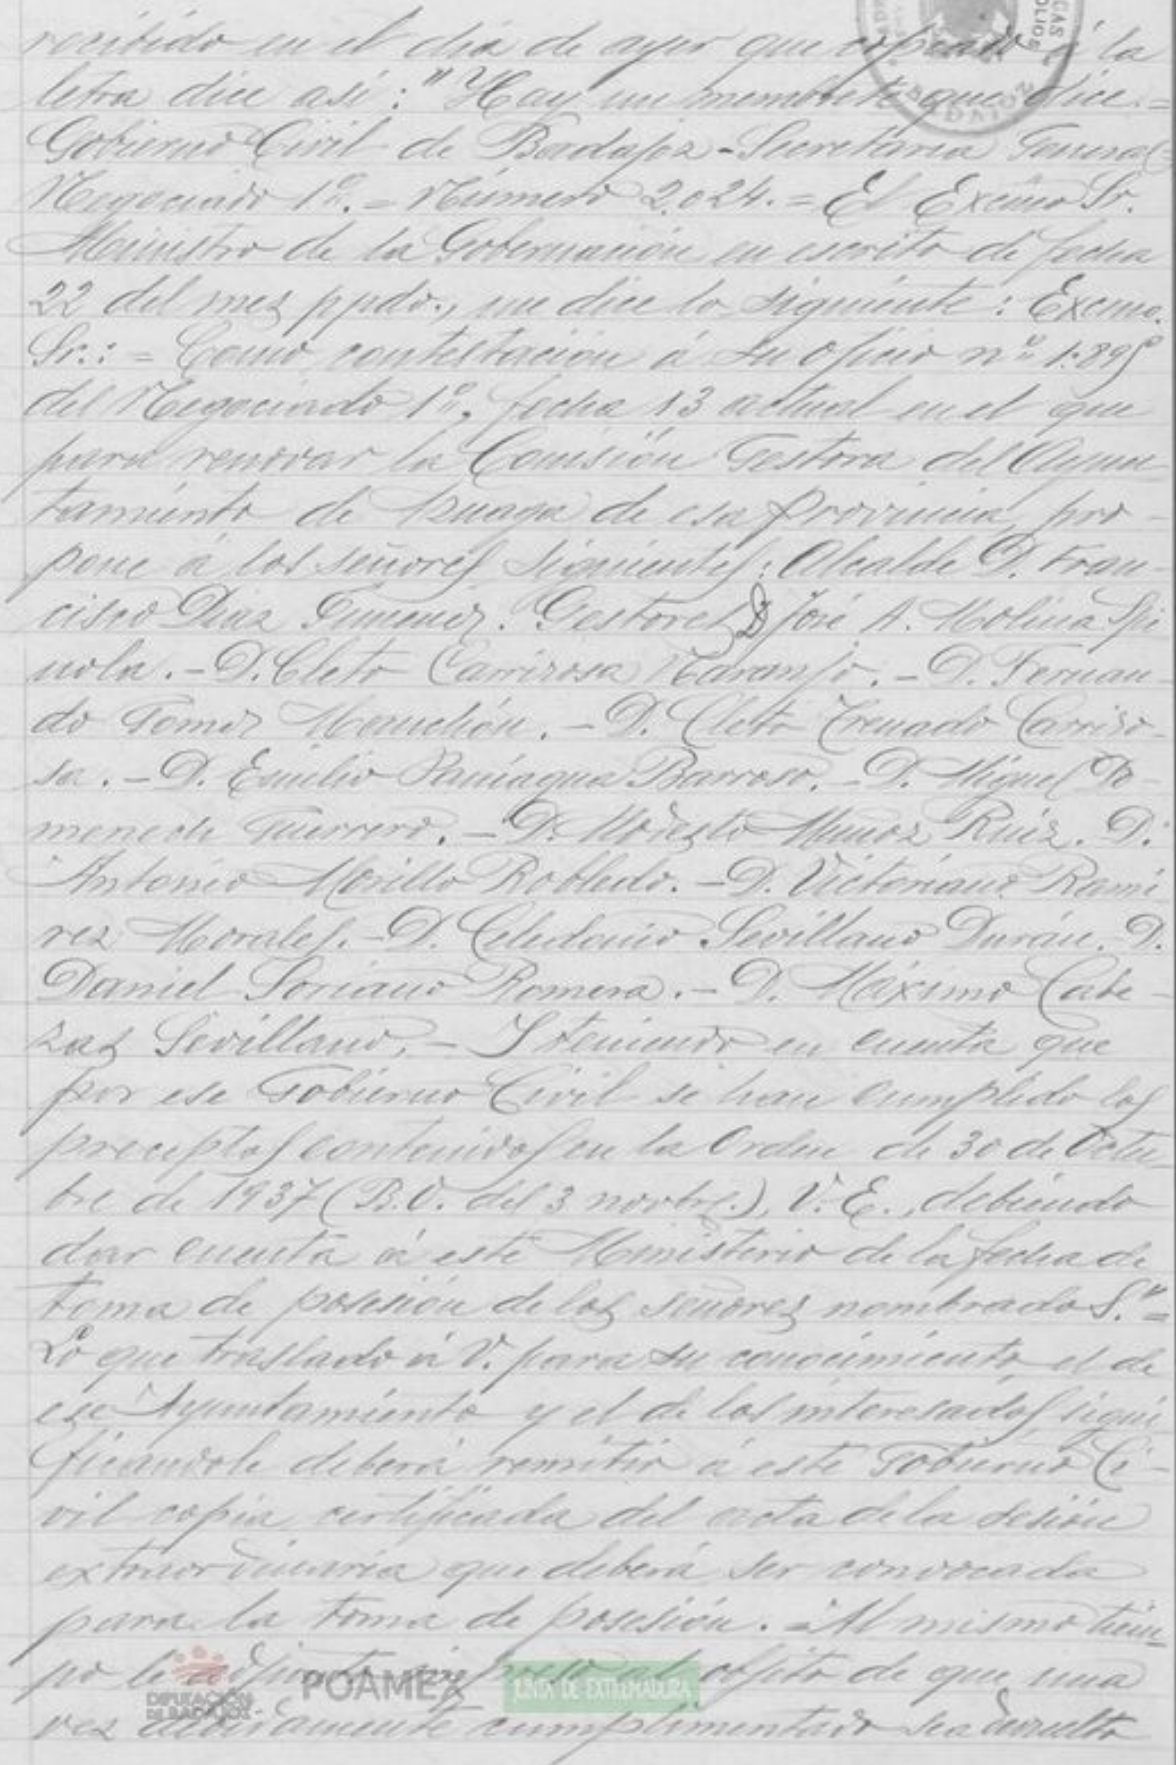 recibido en el día de ayer que copiado á la
letra dice así: "Hay un membrete que dice.=
Gobierno Civil de Badajoz-Secretaria General
Negociado 1º.=Número 2.024.=El Excmo Sr.
Ministro de la Gobernación en escrito de fecha
22 del mes ppdo., me dice lo siguiente: Excmo.
Sr.:=Como contestación á su oficio nº 1.895
del Negociado 1º, fecha 13 actual en el que
para renovar la Comisión Gestora del Ayun
tamiento de Azuaga de esa provincia, pro-
pone á los señores siguientes: Alcalde D. Fran-
cisco Díaz Gimenez. Gestores D José A. Molina Spi
nola.-D. Cleto Carrizosa Naranjo.-D. Fernan-
do Gomez Monchón.-D. Cleto Trenado Carrizo-
sa.-D. Emilio Paniagua Barroso.-D. Miguel
Guerrero.-D. Modesto Muñoz Ruiz. D.
Antonio Morillo Robledo.-D. Victoriano Rami
rez Morales.-D. Celedonio Sevillano Durán. D.
Daniel Soriano Romera.-D. Máximo Cabe-
zas Sevillano.-Y teniendo en cuenta que
por ese Gobierno Civil se han cumplido los
preceptos contenidos en la Orden de 30 de Octu-
bre de 1937 (B.O. del 3 novbre.), V.E., debiendo
dar cuenta á este Ministerio de la fecha de
toma de posesión de los señores nombrados."=
Lo que traslado á V. para su conocimiento, el de
ese Ayuntamiento y el de los interesados, signi
ficandole deberá remitir á este Gobierno Ci-
vil copia certificada del acta de la sesión
extraordinaria que deberá ser convocada
para la toma de posesión.=Al mismo tiem-
po le adjunto al objeto de que una
vez cumplimentado sea devuelto
DIPUTACIÓN DE BADAJOZ
POAMEX
JUNTA DE EXTREMADURA